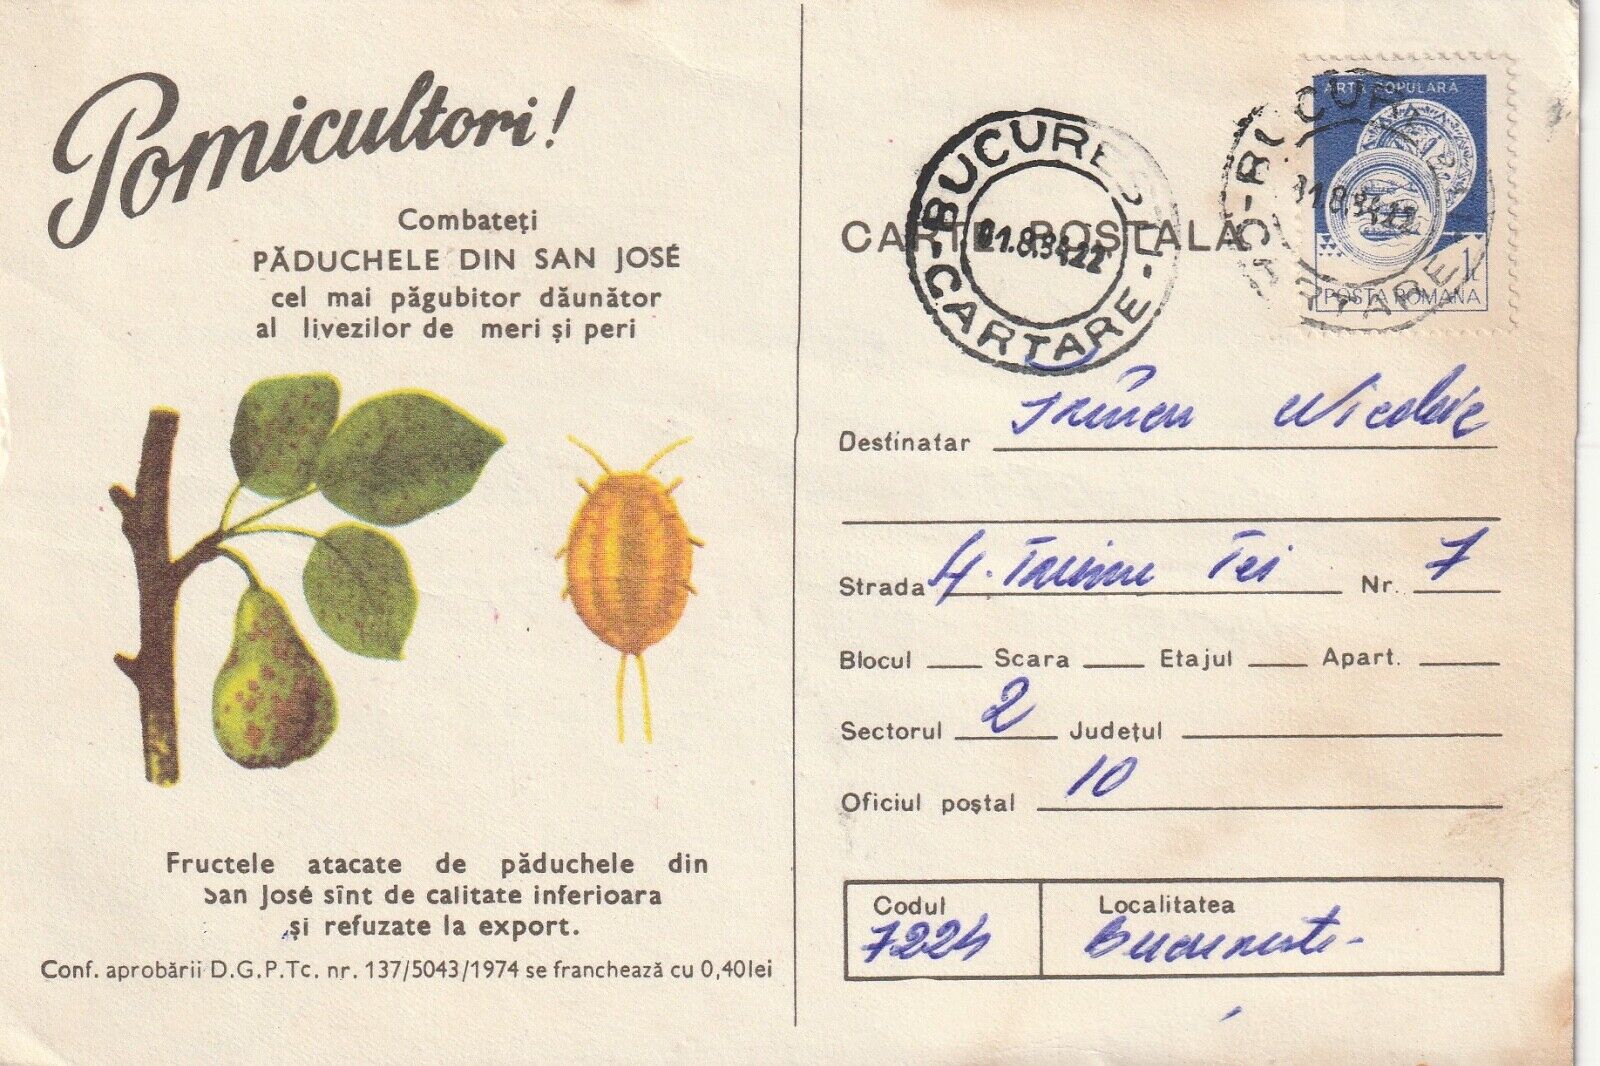 Pomicultori!
Combateți
PĂDUCHELE DIN SAN JOSÉ
cel mai păgubitor dăunător
al livezilor de meri și peri
Fructele atacate de păduchele din
San José sînt de calitate inferioara
și refuzate la export.
Conf. aprobării D.G.P.Tc. nr. 137/5043/1974 se franchează cu 0,40lei
ARTĂ POPULARĂ
1L
POSTA ROMANA
CARTE POSTALA
BUCUREȘTI
CARTARE
Destinatar Nicolaie
Strada Tei Nr. 7
Blocul Scara Etajul Apart.
Sectorul 2 Județul
Oficiul poștal 10
Codul Localitatea
București